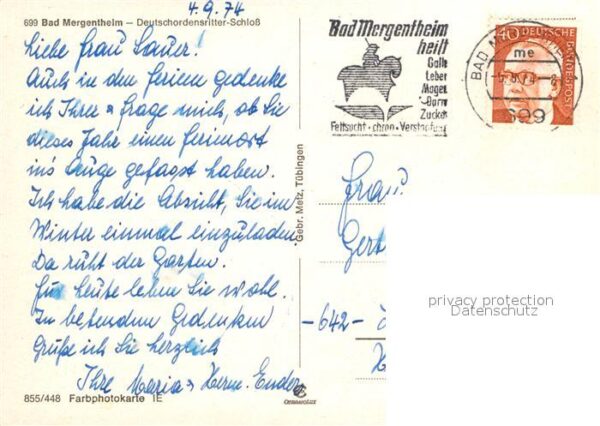 4.9.74
699 Bad Mergentheim – Deutschordensritter-Schloß
Liebe Frau Sauer!
Auch in den Ferien gedenke
ich Ihrer u frage mich, ob Sie
dieses Jahr einen Ferienort
ins Auge gefasst haben.
Ich habe die Absicht, Sie im
Winter einmal einzuladen.
Da ruht der Garten.
Für heute leben Sie wohl.
In betendem Gedenken
Grüße ich Sie herzlich
Ihre Maria u Herm. Ender
855/448 Farbphotokarte IE
Gebr. Metz, Tübingen
Bad Mergentheim
heilt
Galle
Leber
Magen
Darm
Zucker
Fettsucht · chron · Verstopfung
BAD
me
699
40 DEUTSCHE BUNDESPOST
Frau
Gert
-642-
privacy protection
Datenschutz